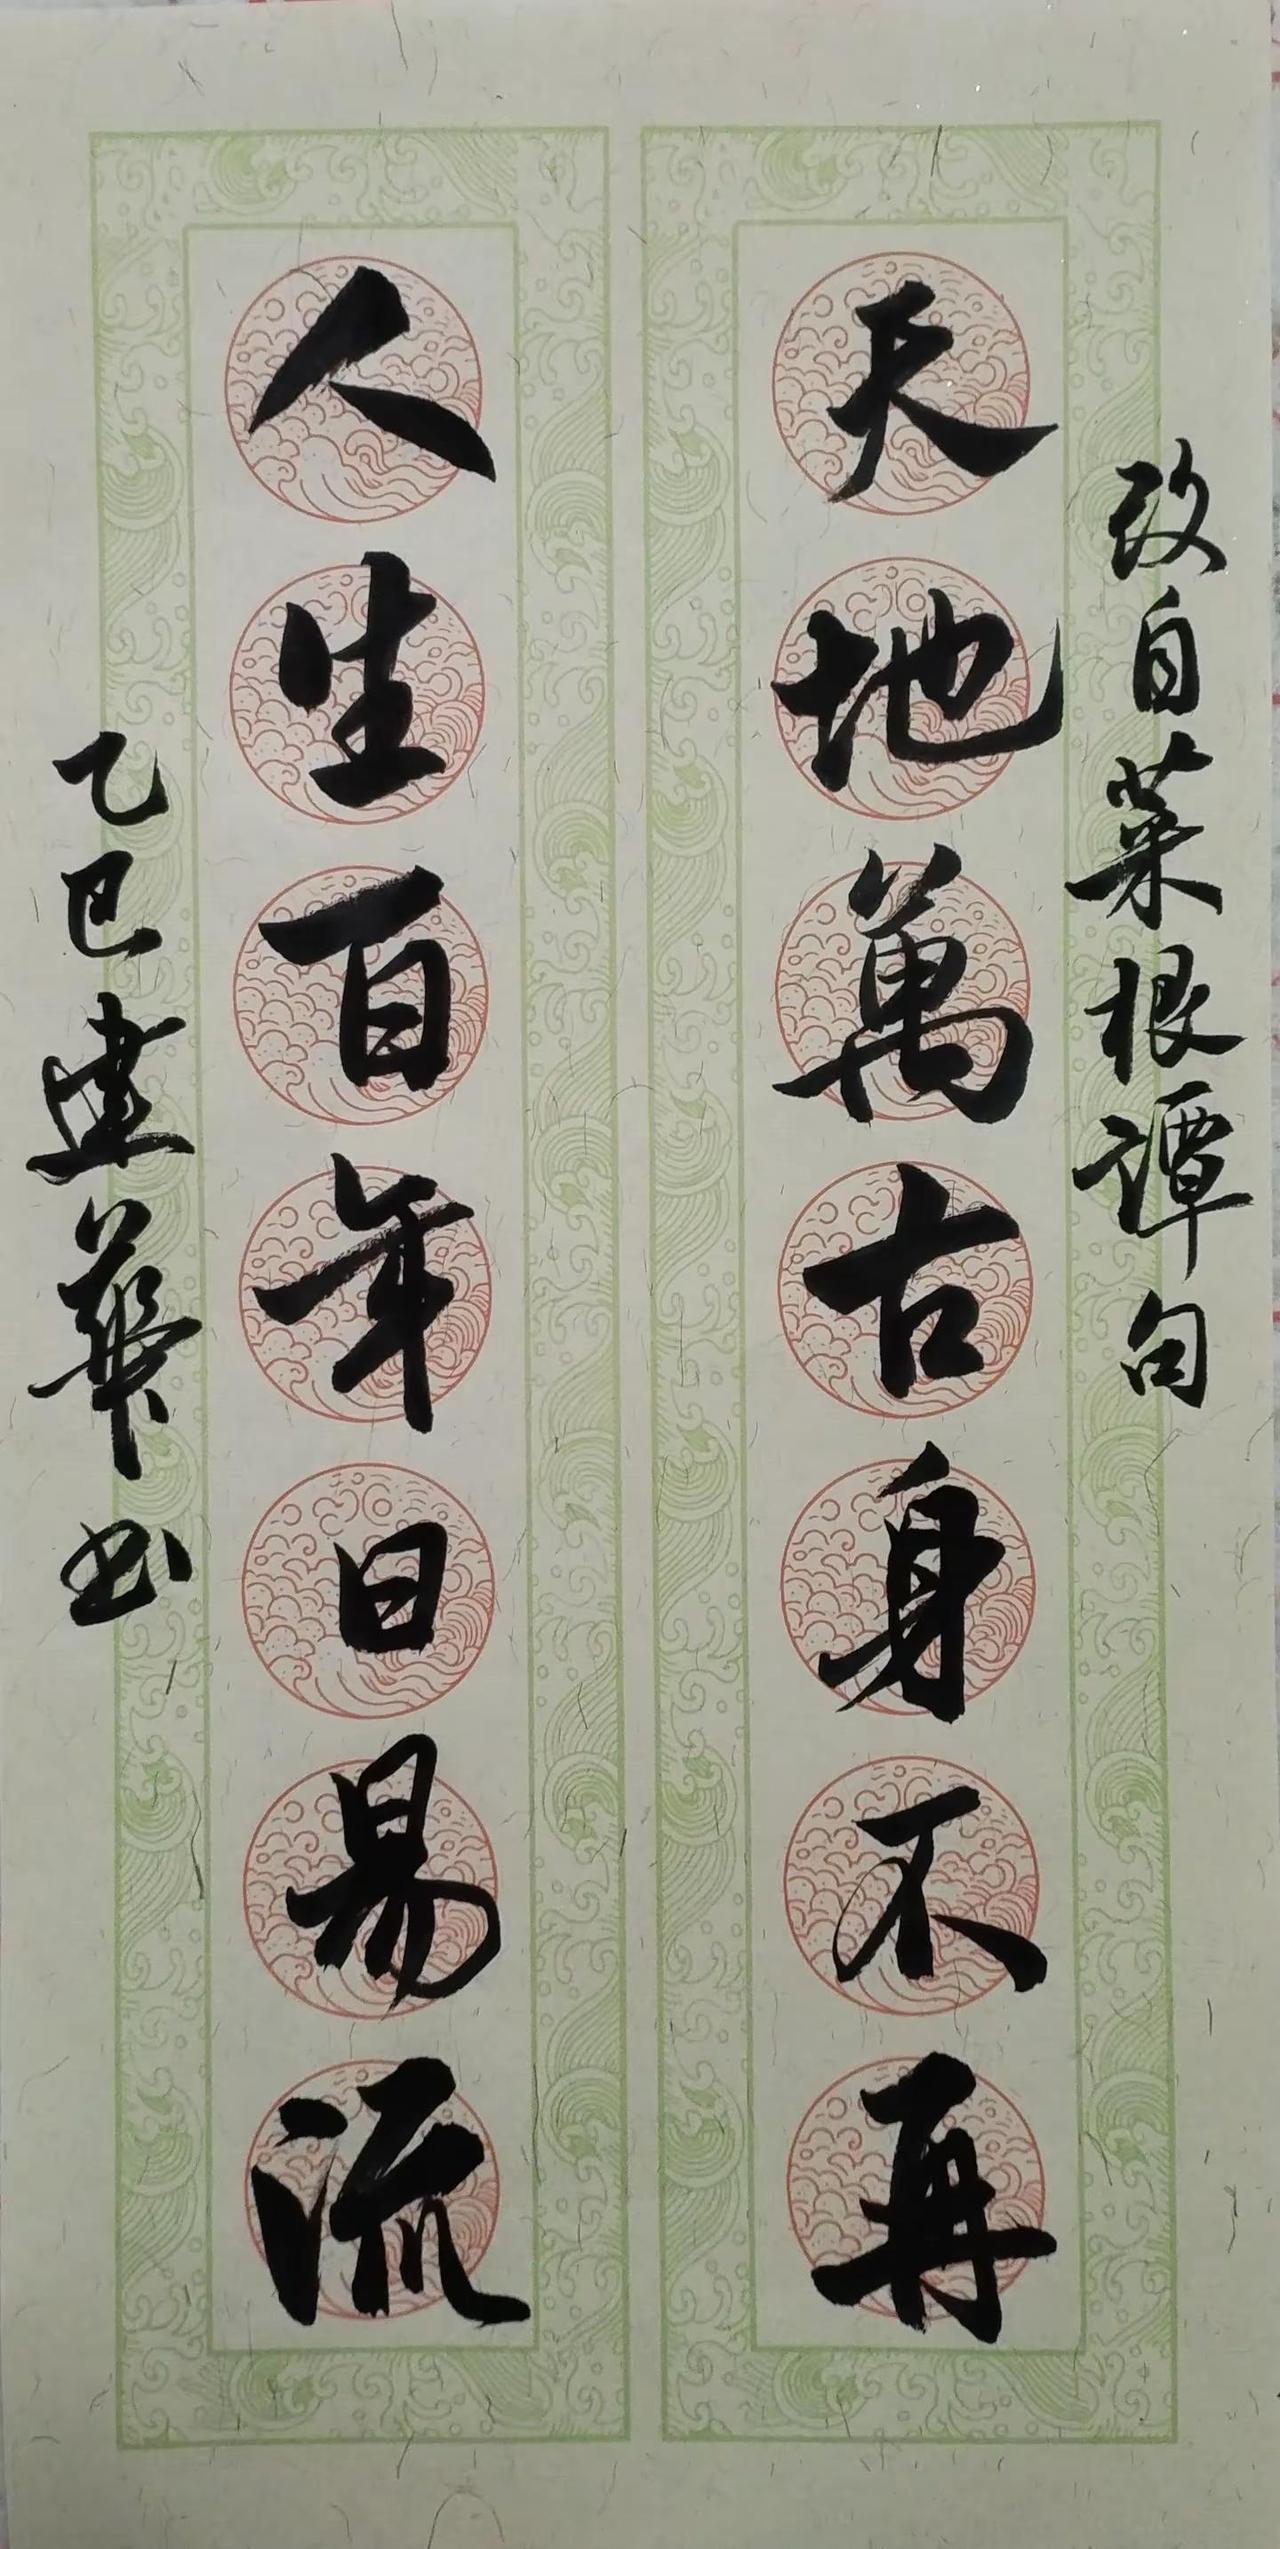 改自菜根譚句
天地萬古身不再
人生百年日易流
乙巳建華书